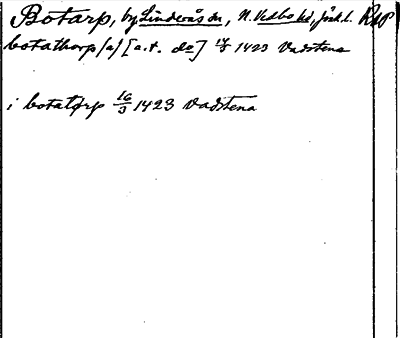 Botarp, by Linderås sn, N. Vedbo hd, Jönk. l. RAP
botathorp [a] [a.t. do] 14/3 1423 Vadstena
i botatorp 16/3 1423 Vadstena